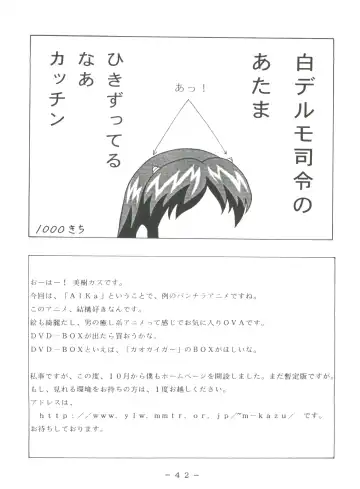 白デルモ司令の
あたま
あっ！
ひきずってる
なあ
カッチン
1000きち
おーはー！ 美樹カズです。
今回は、「AIKa」ということで、例のパンチラアニメですね。
このアニメ、結構好きなんです。
絵も綺麗だし、男の癒し系アニメって感じでお気に入りOVAです。
DVD－BOXが出たら買おうかな。
DVD－BOXといえば、「ガオガイガー」のBOXがほしいな。
私事ですが、この度、10月から僕もホームページを開設しました。まだ暫定版ですが。
もし、見れる環境をお持ちの方は、1度お越しください。
アドレスは、
http：／／www．ylw．mmtr．or．jp／~m－kazu／ です。
お待ちしております。
－42－